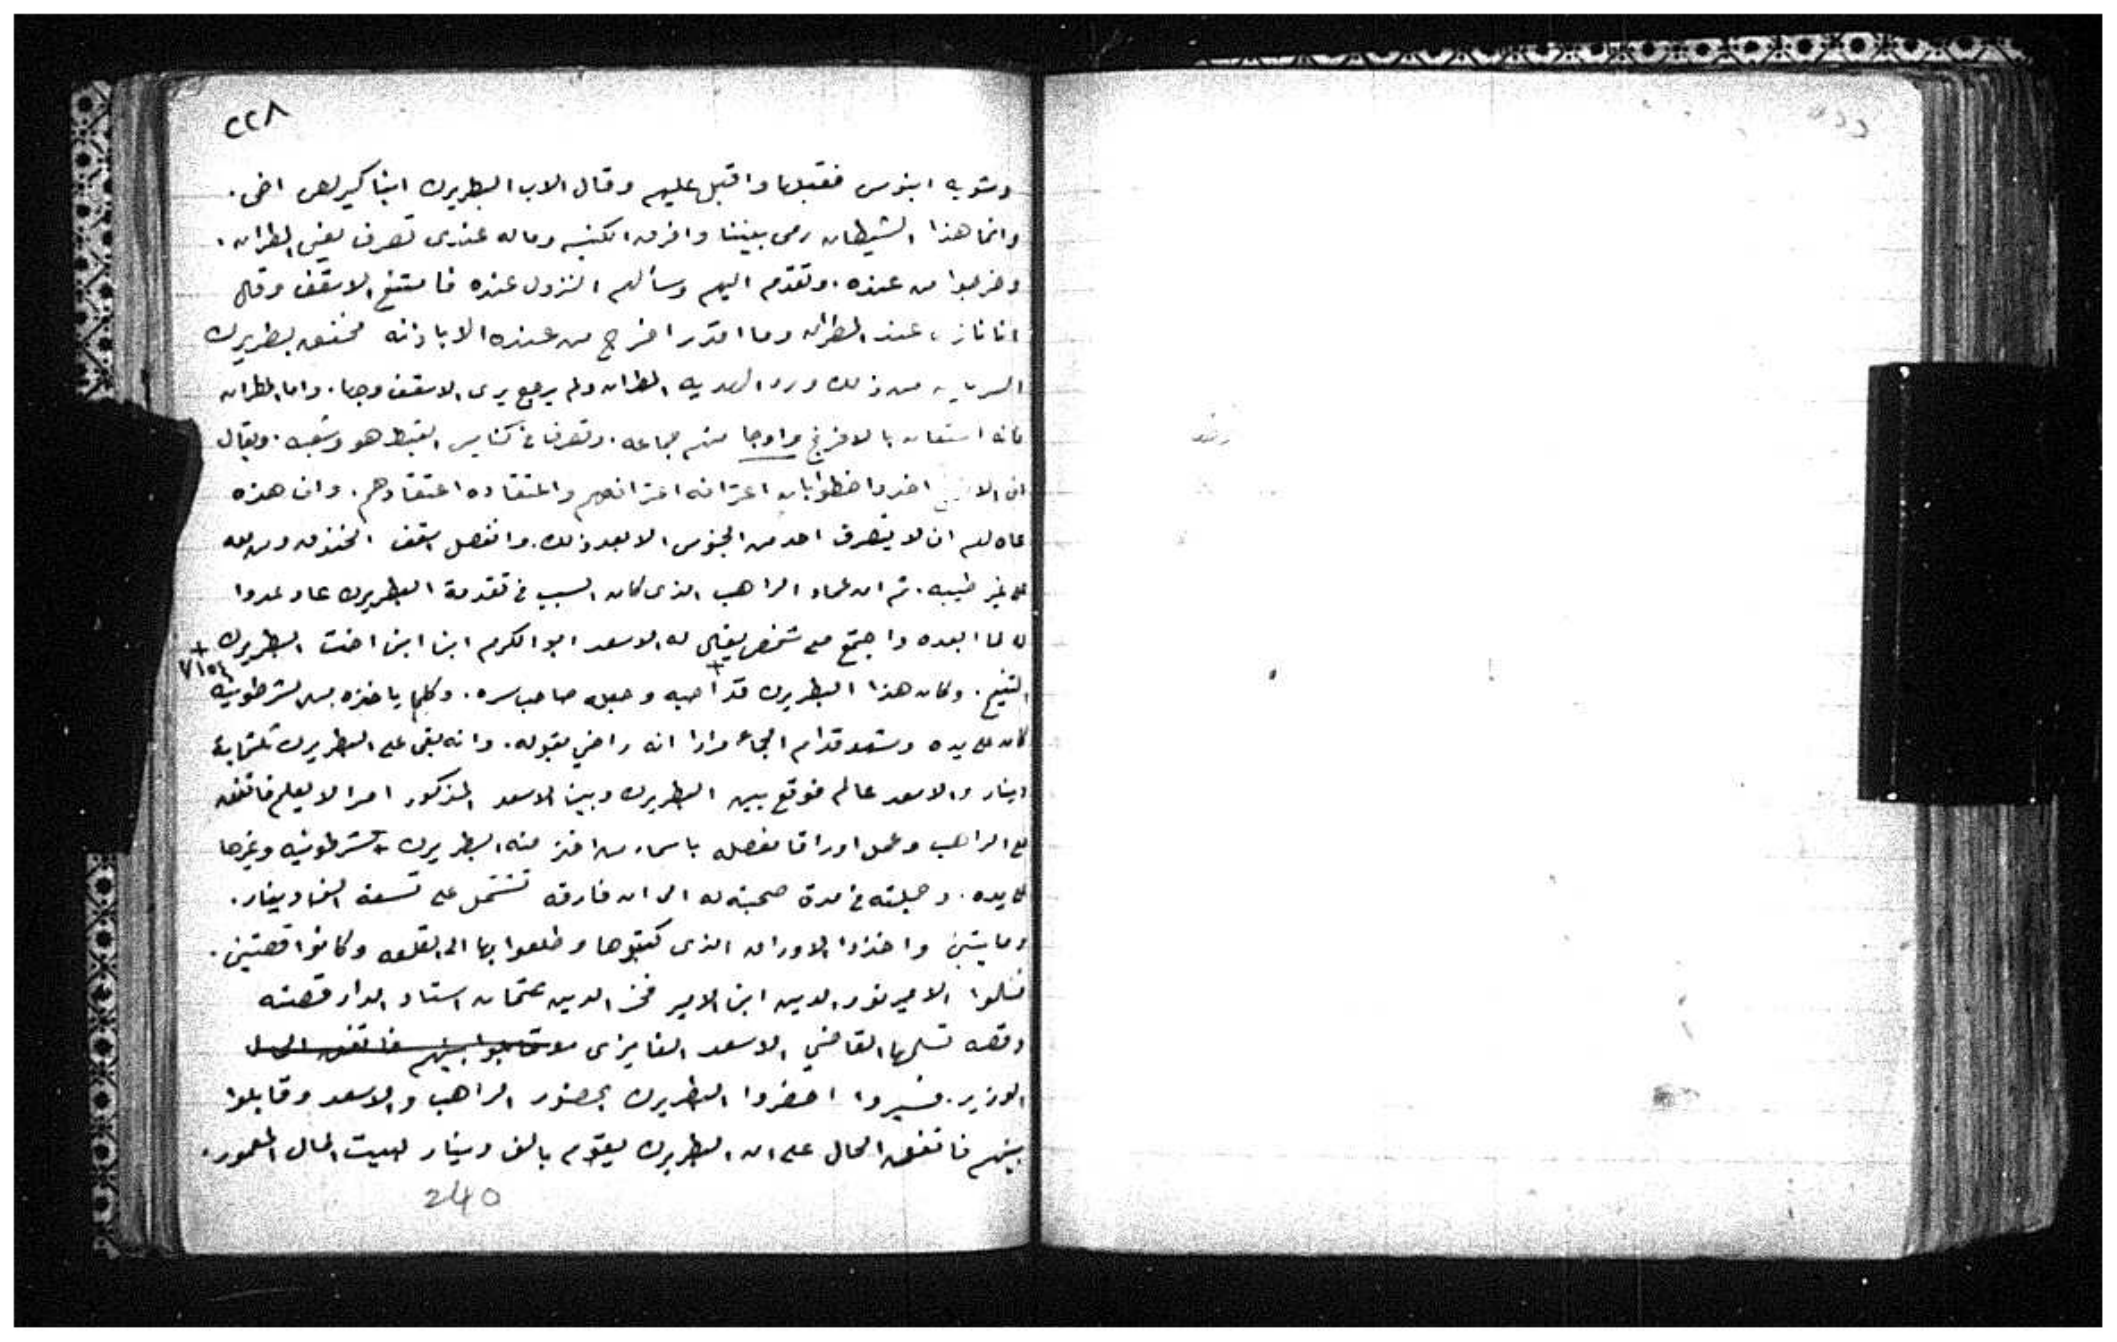 ٢٢٨
وشويه ابنوس فقبلها واقبل عليهم وقال الاب البطريرك انبا كيرلص اخى .
وانما هذا الشيطان رمى بيننا وافرق الكنيسه وماله عندى تصرف يعنى المطران .
وخرجوا من عنده . وتقدم اليهم وسألهم النزول عنده فامتنع الاسقف وقال
انا نازل عند المطران وما اقدر اخرج من عنده الا باذنه فحنق بطريرك
السريان من ذلك ورد الهديه المطران ولم يرجع يرى الاسقف وجها . واما المطران
فانه استعان بالافرنج واوجا منهم جماعه . وتصرفا فى كنايس القبط هو وشعبه . ويقال
ان الافرنج اخدوا خطوا بان اعترافه اعترافهم واعتقاده اعتقادهم . وان هذه
عاده لهم ان لا يتصرف احد من الجنوس الا بعد ذلك . وانفصل اسقف الخندق ومن معه
على غير طيبه . ثم ان عماد الراهب الذى كان السبب فى تقدمة البطريرك عاد عدوا
له لما ابعده واجتمع مع شخص يقال له الاسعد ابو الكرم ابن ابن اخت البطريرك
المتنيح . وكان هذا البطريرك قد احبه وجعله صاحب سره . وكلما ياخذه من الشرطونيه
كان على يده وشهد قدام الجماعه مرارا انه راضي بقوله . وانه بقى على البطريرك ثلثماية
دينار والاسعد عالم فوقع بين البطريرك وبين الاسعد المذكور امرا لا يعلم فاتفق
مع الراهب وعمل اوراقا مفصله باسماء من اخذ منه البطريرك الشرطونيه وغيرها
على يده . وجملته فى مدة صحبته له الى ان فارقه تشتمل على تسعة الف دينار .
ومايتين واخذوا الاوراق الذى كتبوها وطلعوا بها الى القلعه وكانوا قصتين .
فسلموا الامير نور الدين ابن الامير فخر الدين عثمان استاد الدار قصته
وقصه تسلمها القاضي الاسعد الفايزى
الوزير . فسيروا احضروا البطريرك بحضور الراهب والاسعد وقابلوا
بينهم فاتفق الحال على ان البطريرك يقوم بالف دينار لبيت المال المعمور .
240